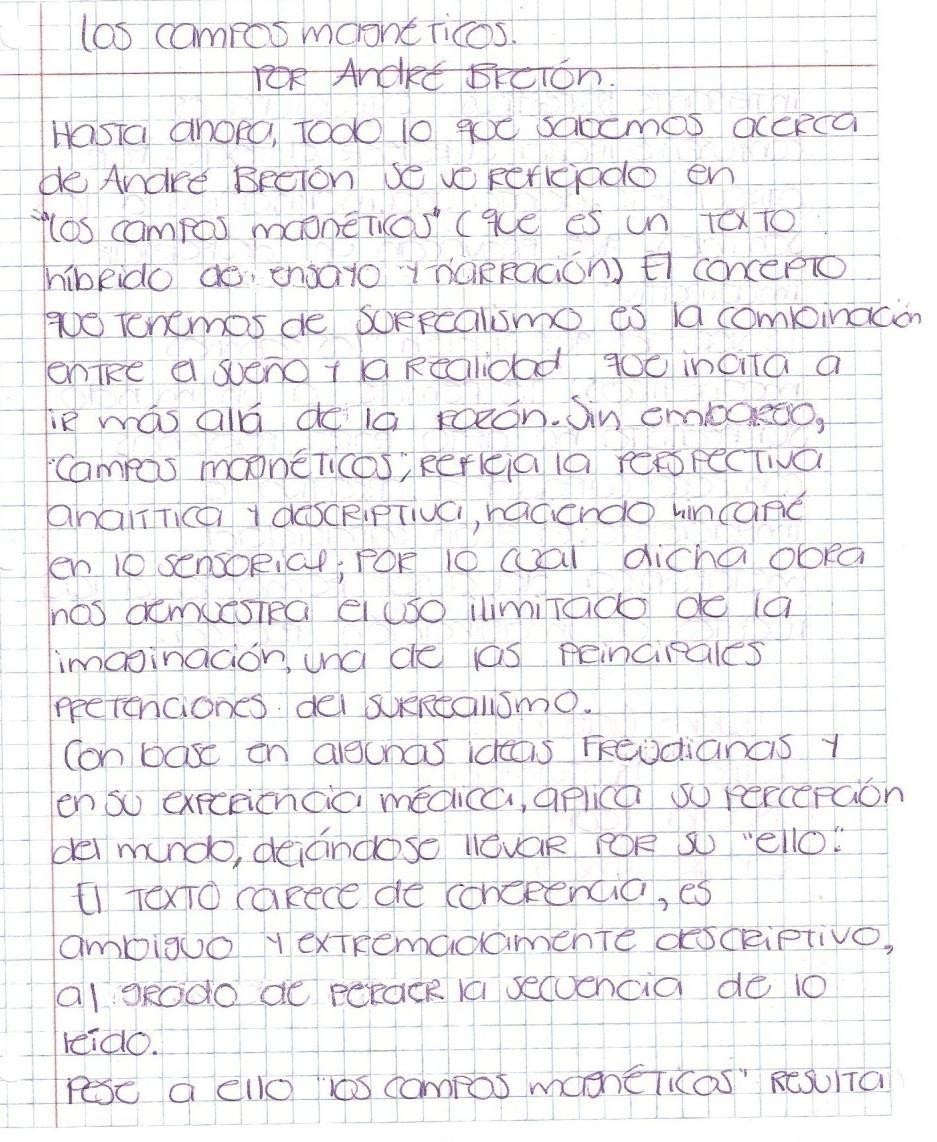 los campos magnéticos.
POR André Bretón.
Hasta ahora, todo lo que sabemos acerca
de André Bretón se ve reflejado en
"los campos magnéticos" (que es un texto
híbrido de ensayo y narración) El concepto
que tenemos de surrealismo es la combinación
entre el sueño y la realidad que incita a
ir más allá de la razón. Sin embargo,
"Campos magnéticos", refleja la perspectiva
analítica y descriptiva, haciendo hincapié
en lo sensorial; por lo cual dicha obra
nos demuestra el uso ilimitado de la
imaginación, una de las principales
pretenciones del surrealismo.
Con base en algunas ideas Freudianas y
en su experiencia médica, aplica su percepción
del mundo, dejándose llevar por su "ello".
El texto carece de coherencia, es
ambiguo y extremadamente descriptivo,
al grado de perder la secuencia de lo
leído.
Pese a ello "los campos magnéticos" resulta